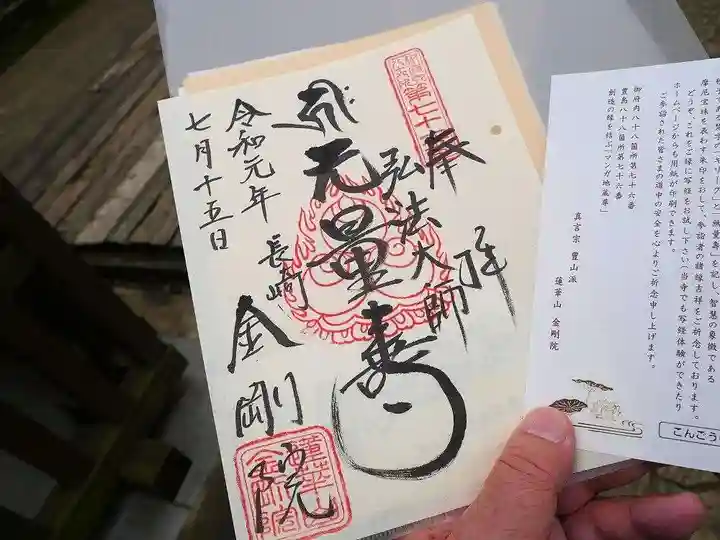 奉拝
弘法大師
無量壽
長崎
金剛院
令和元年
七月十五日
蓮華山
金剛院
摩尼宝珠を表わす朱印をおし、参詣者の諸縁吉祥をご祈念しております。
どうぞ、これをご縁に写経をお試し下さい（当寺でも写経体験ができたり
ホームページからも用紙が印刷できます。
ご参詣された皆さまの道中の安全を心よりご祈念申し上げます。
御府内八十八箇所第七十六番
豊島八十八箇所第七十六番
創造の縁を結ぶ「マンガ地蔵尊」
真言宗 豊山派
蓮華山 金剛院
こんごう